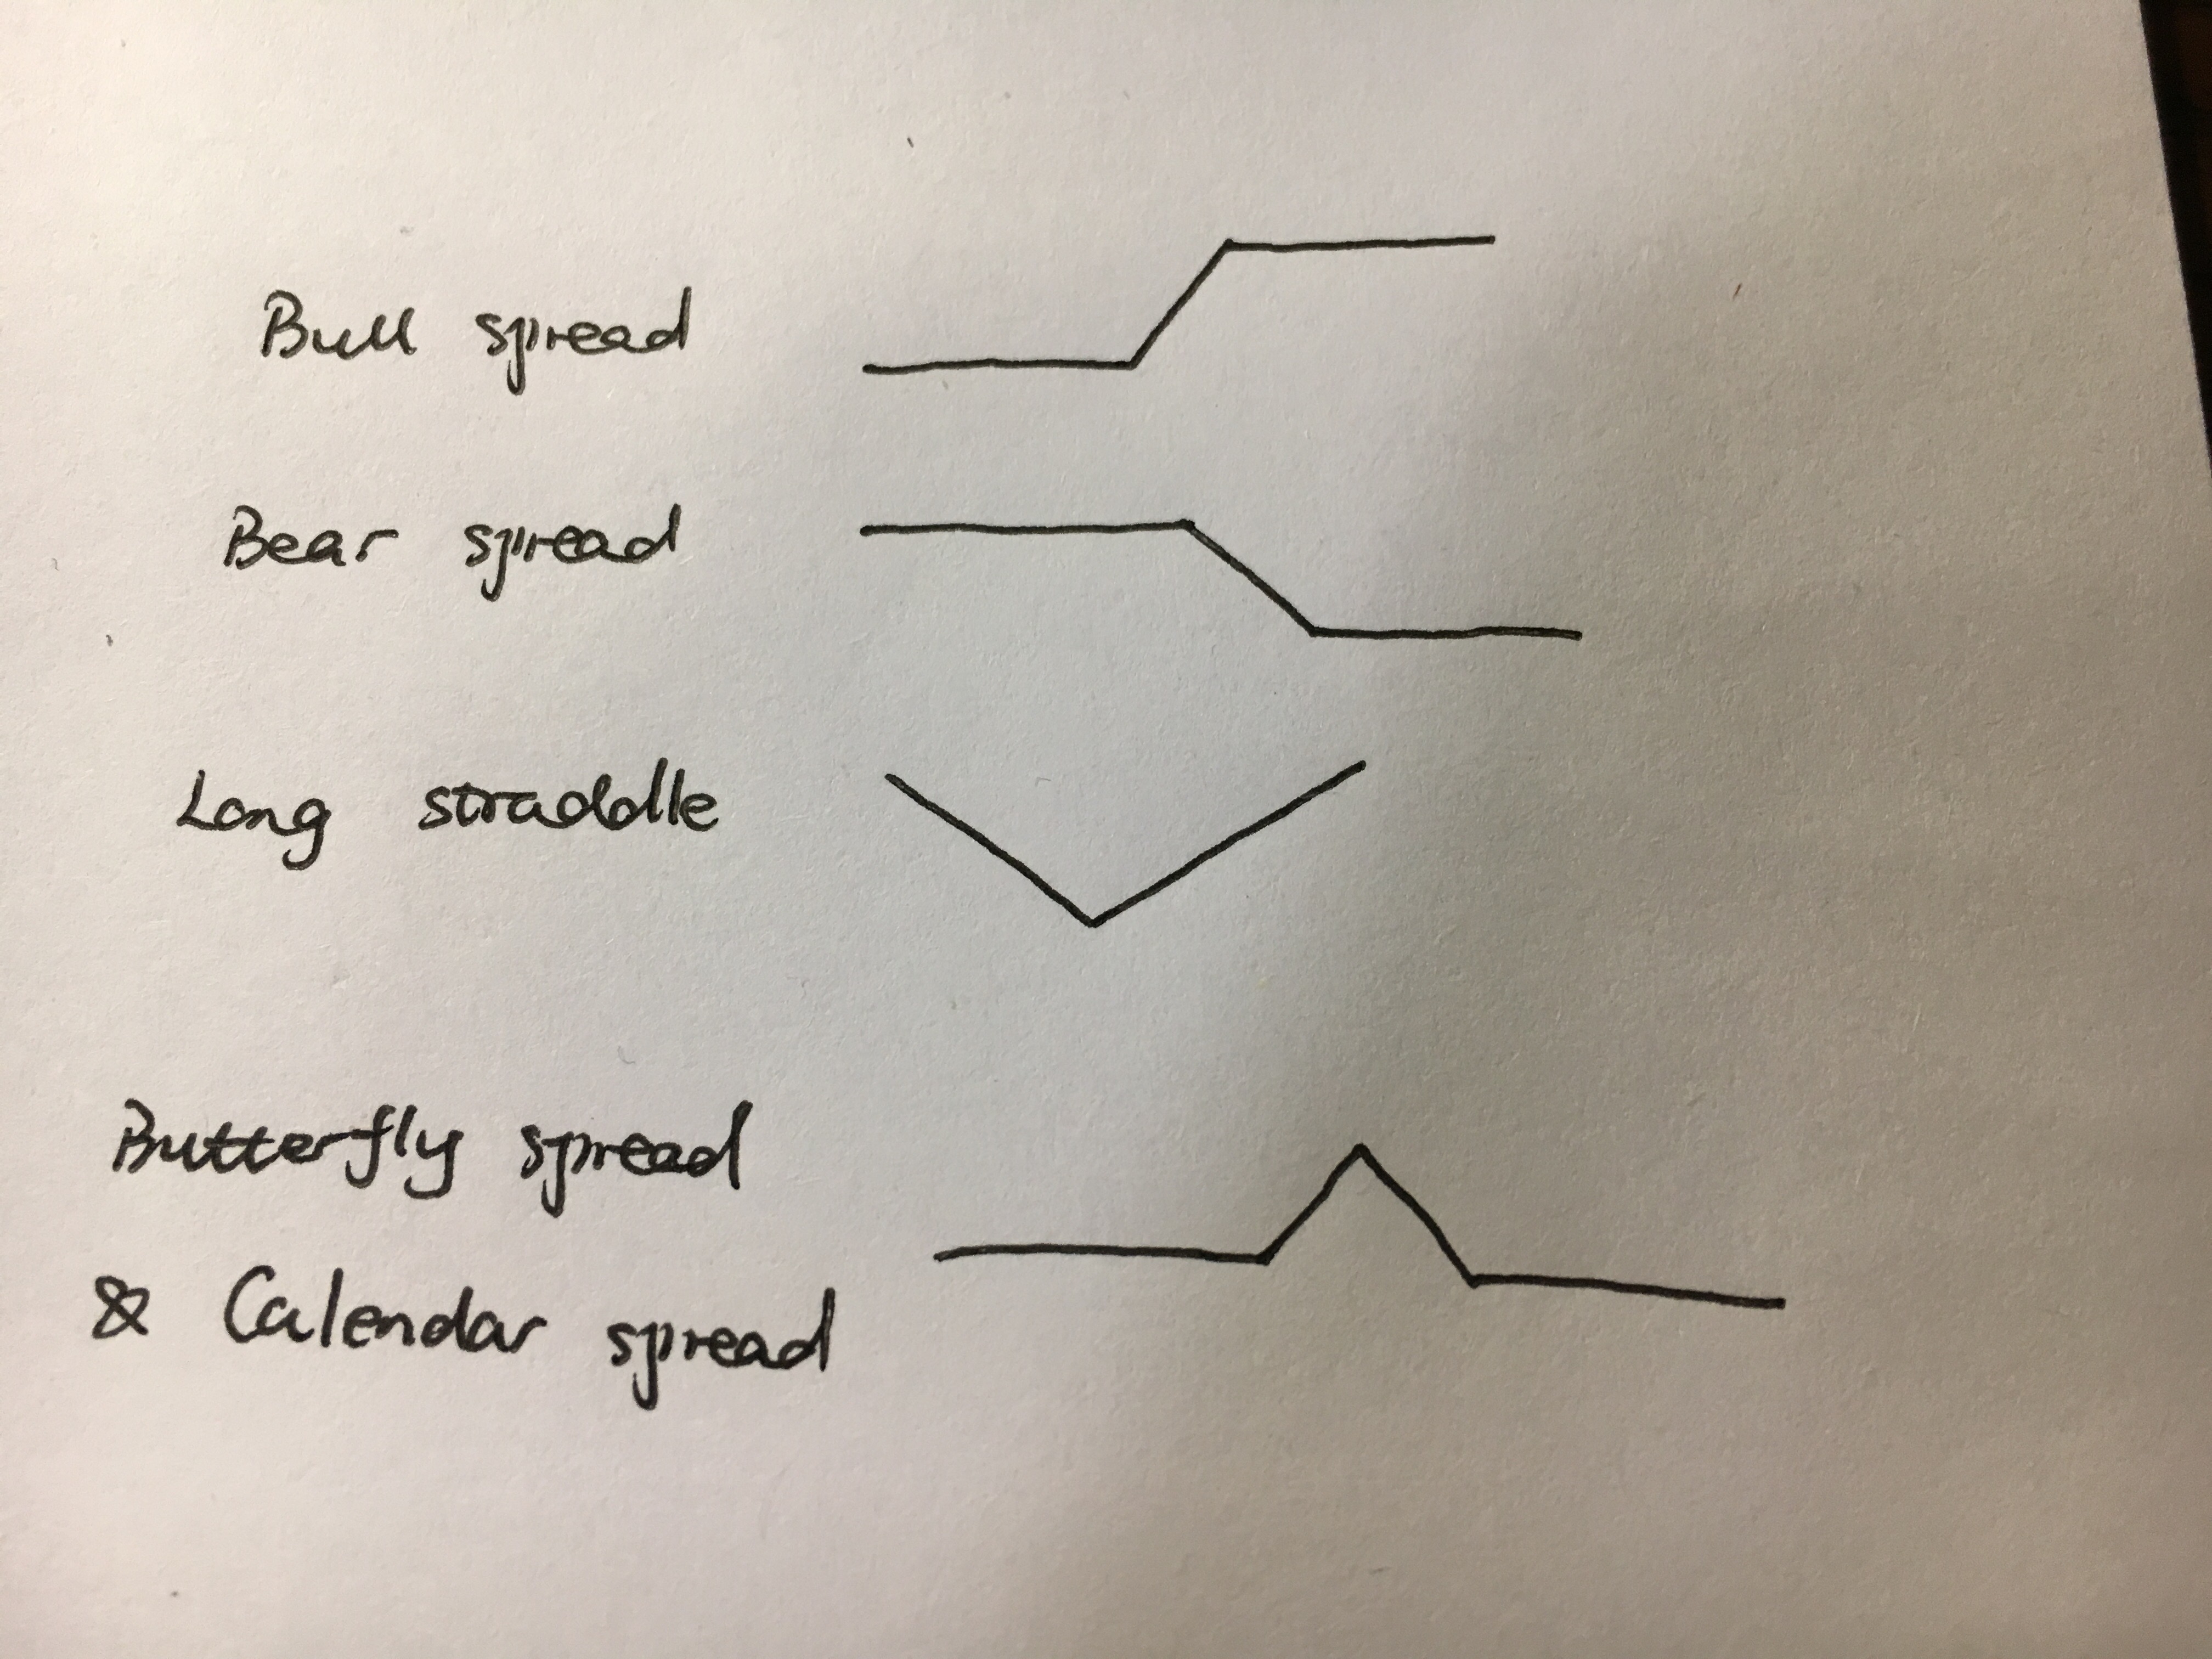 Bull spread
Bear spread
Long straddle
Butterfly spread
& Calendar spread